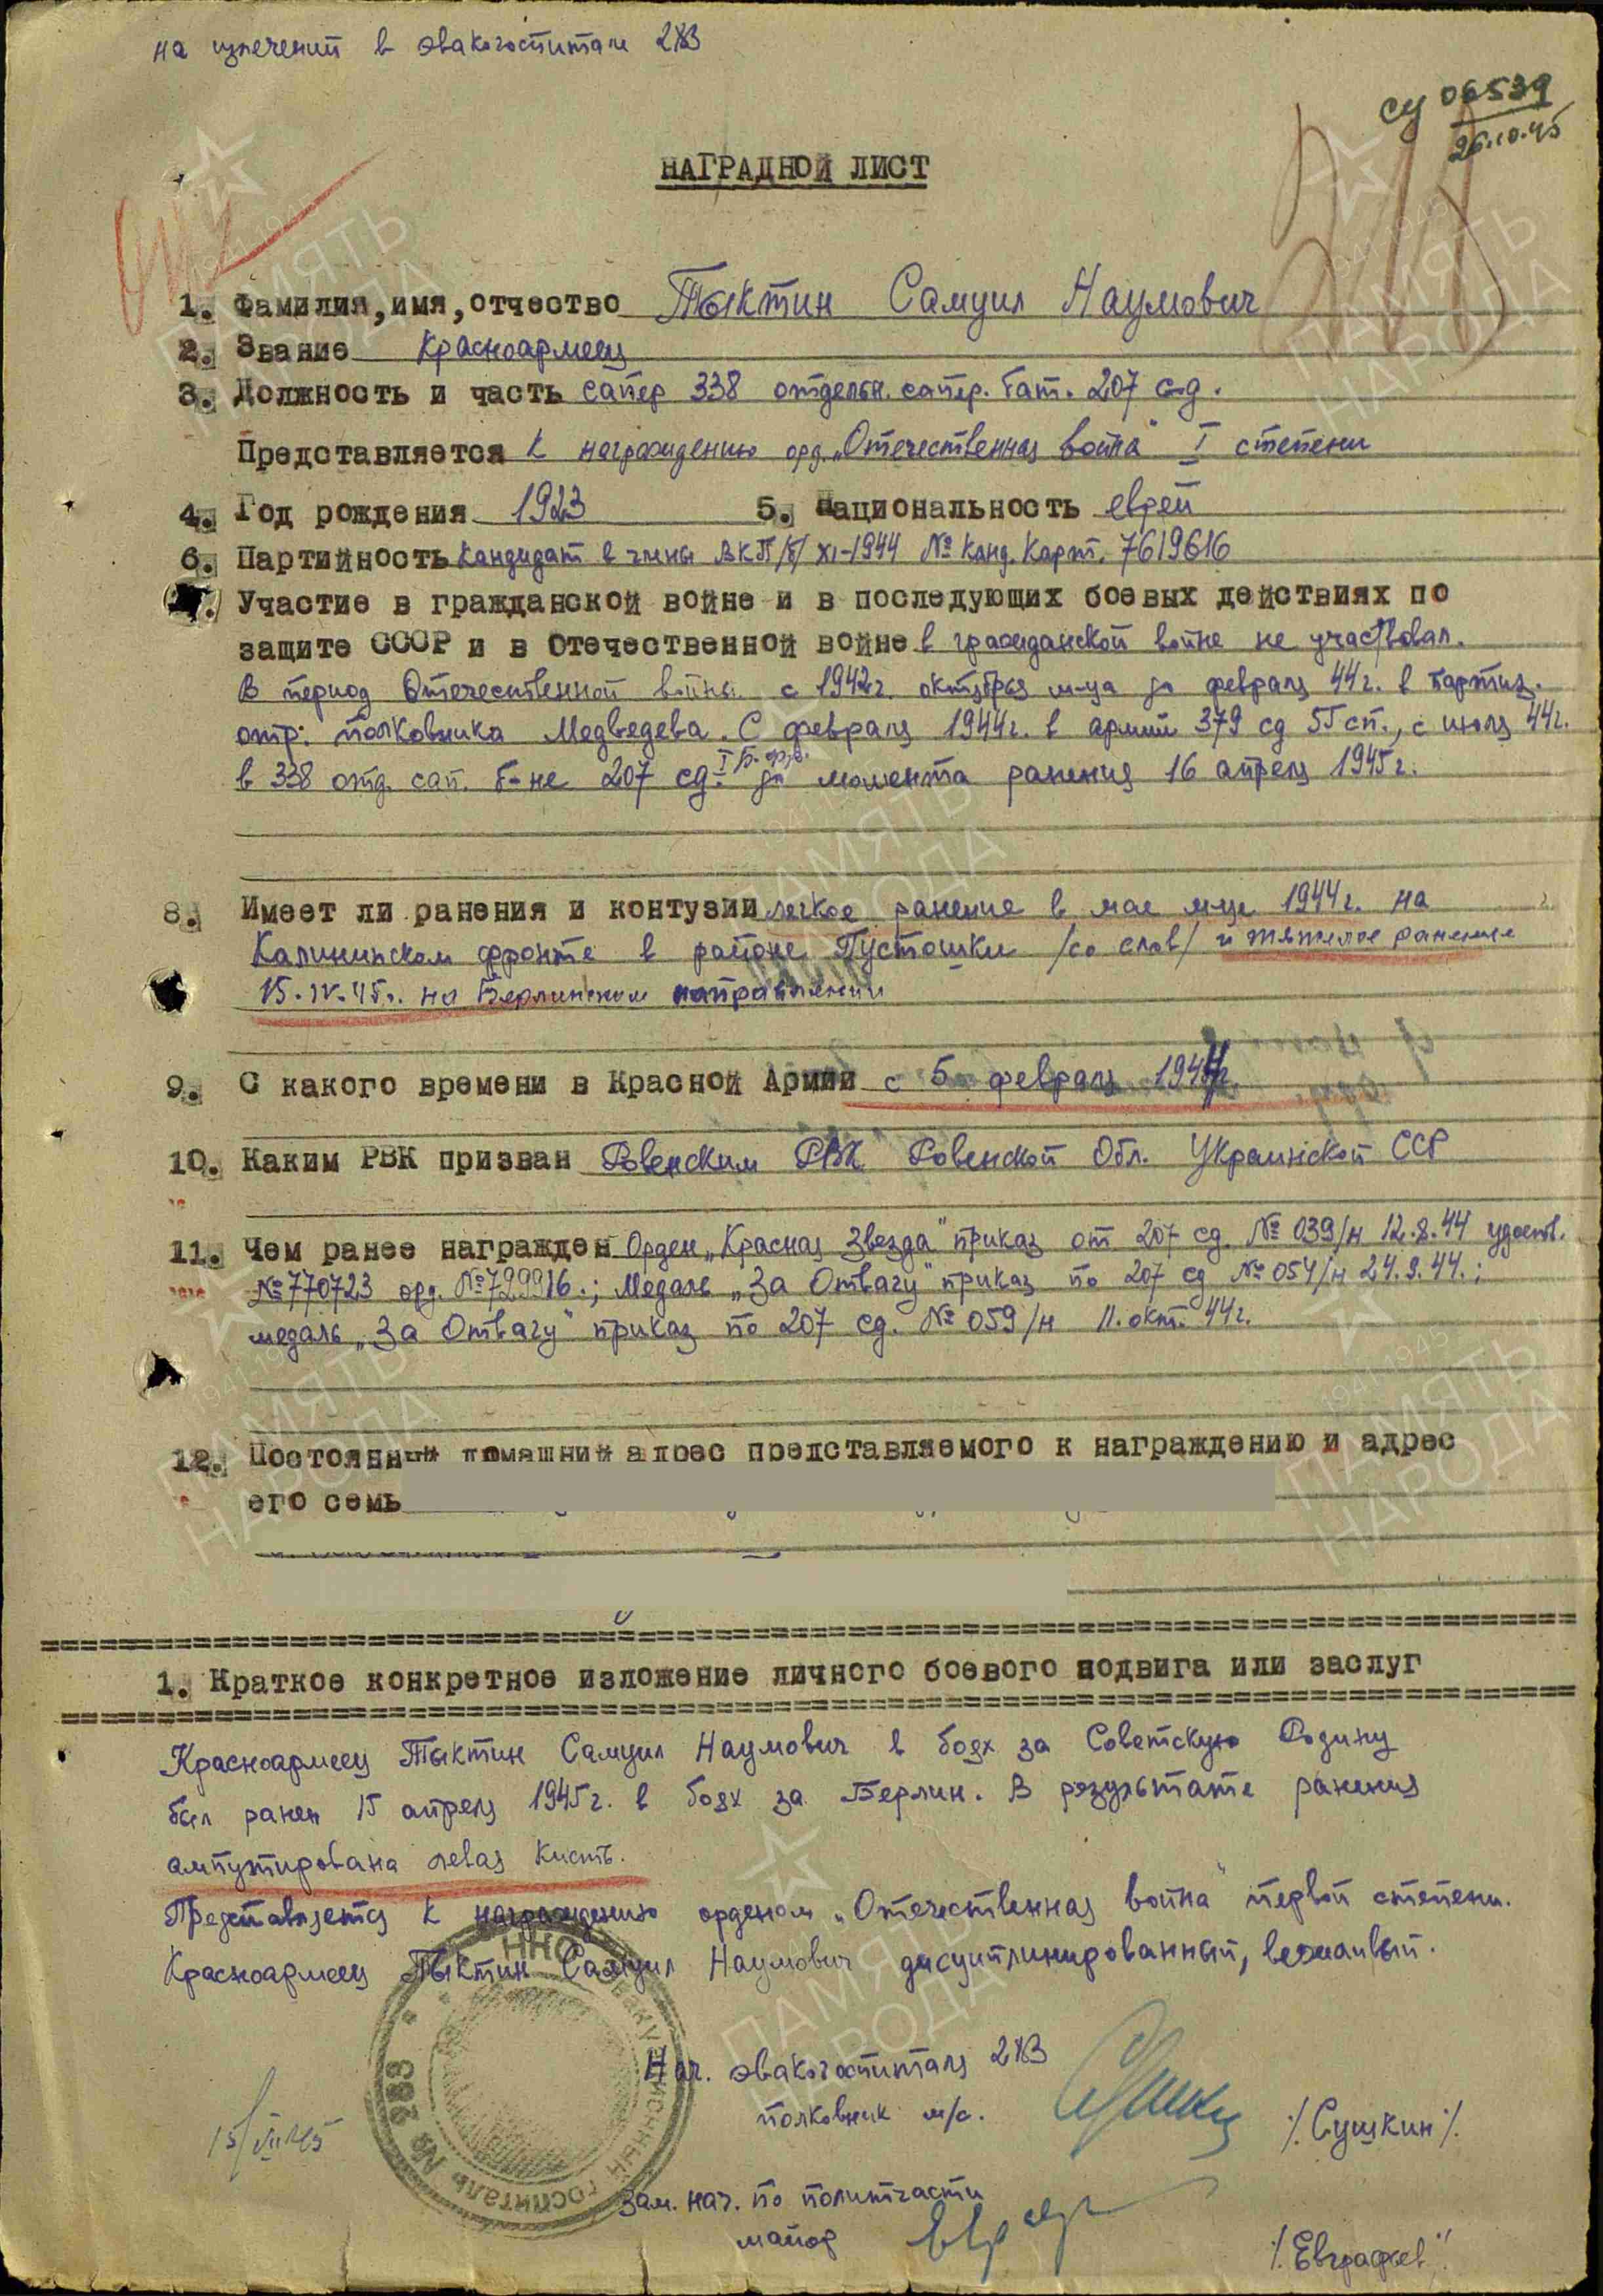 на излечении в эвакогоспитале
Су 06539
26.10.45
НАГРАДНОЙ ЛИСТ
1. Фамилия, имя, отчество Тыктин Самуил Наумович
2. Звание Красноармеец
3. Должность и часть сапер 338 отдельн. сапер. бат. 207 сд.
Представляется к награждению орд. „Отечественная война" I степени
4. Год рождения 1923 5. Национальность еврей
6. Партийность Кандидат в члены ВКП/б/ XI-1944 № Канд. Карт. 7619616
Участие в гражданской войне и в последующих боевых действиях по
защите СССР и в Отечественной войне в гражданской войне не участвовал.
В период Отечественной войны с 1942г. октября м-ца до февраля 44г. в партиз.
отр: полковника Медведева. С февраля 1944г. в армии 379 сд сп., с июля 44г.
в 338 отд. сап. б-не 207 сд I Б. фр. до момента ранения 16 апреля 1945г.
8. Имеет ли ранения и контузии легкое ранение в мае м-це 1944г. на
Калининском фронте в районе Пустошки /со слов/ и тяжелое ранение
15.IV.45г. на Берлинском направлении
9. С какого времени в Красной Армии с 5 февраля 1944г.
10. Каким РВК призван Ровенским РВК Ровенской Обл. Украинской ССР
11. Чем ранее награжден Орден „Красная Звезда" приказ от 207 сд. № 039/н 12.8.44 удост.
№ 770723 орд. № 729916.; Медаль „За Отвагу" приказ по 207 сд № 054/н 24.9.44.;
медаль „За Отвагу" приказ по 207 сд. № 059/н 11. окт. 44г.
12. Постоянный домашний адрес представляемого к награждению и адрес
его семь
1. Краткое конкретное изложение личного боевого подвига или заслуг
Красноармеец Тыктин Самуил Наумович в боях за Советскую Родину
был ранен 15 апреля 1945г. в боях за Берлин. В результате ранения
ампутирована левая кисть.
Представляется к награждению орденом „Отечественная война" первой степени.
Красноармеец Тыктин Самуил Наумович дисциплинированный, вежливый.
Нач. эвакогоспиталя
полковник м/с. /.Сушкин/.
эвакуационный госпиталь №
Зам. нач. по политчасти
майор /.Евграфов/.
ПАМЯТЬ НАРОДА
1941-1945